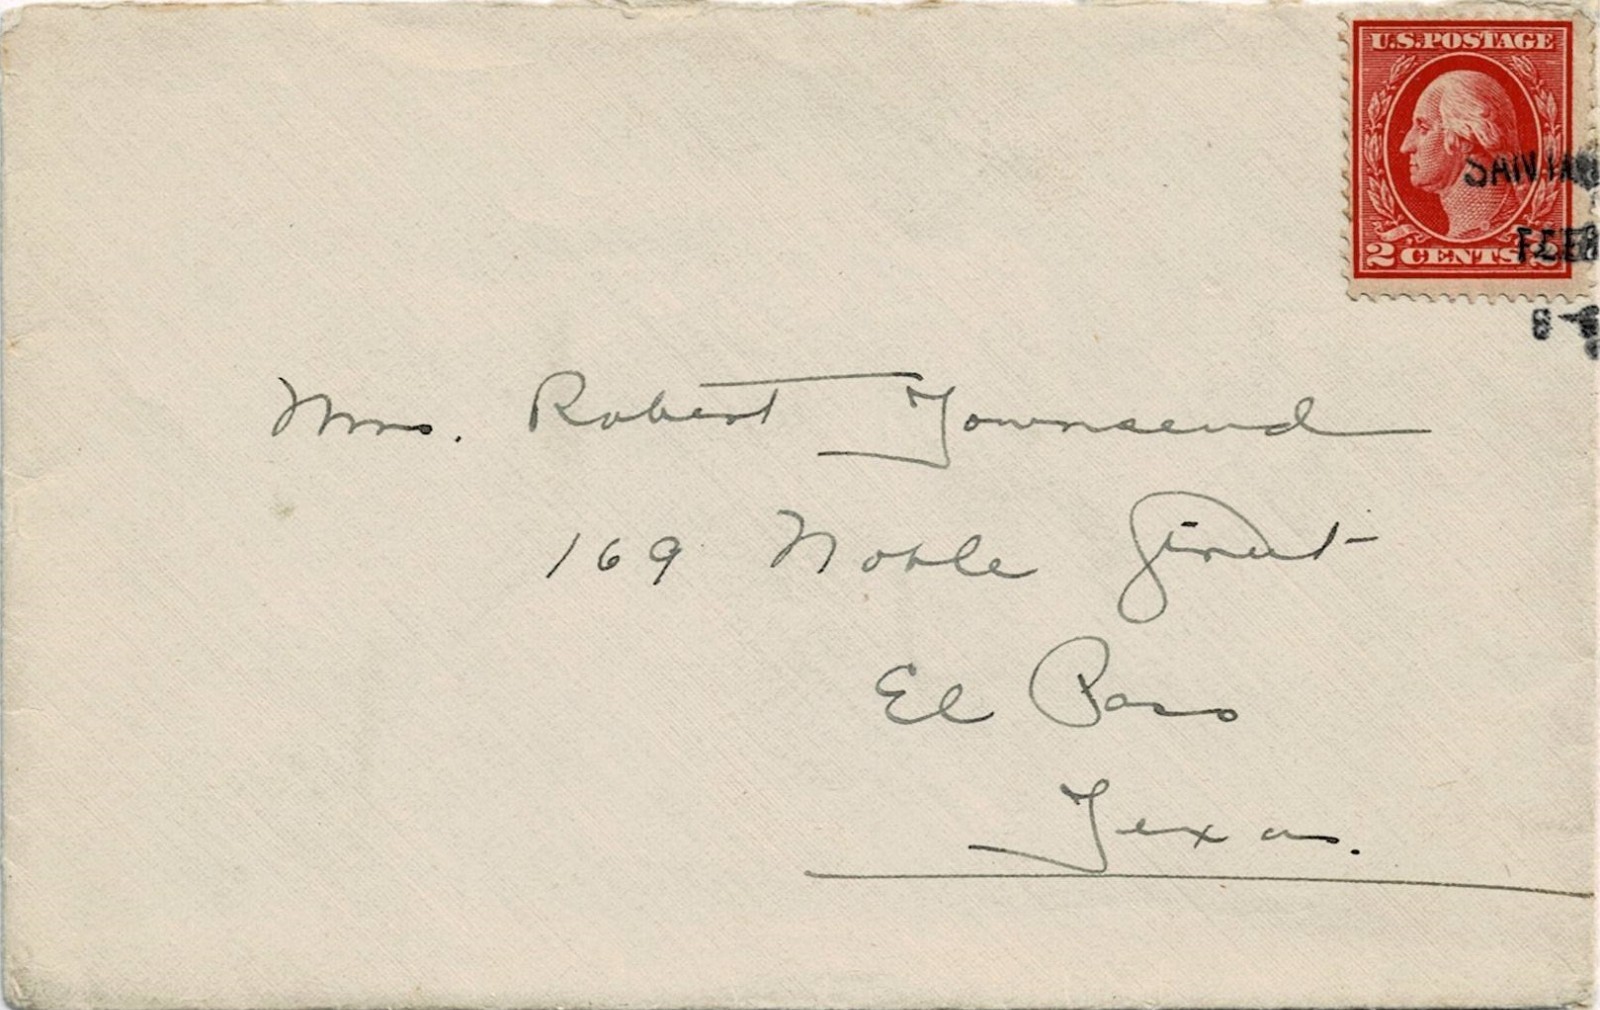 U.S. POSTAGE
2 CENTS 2
SAN
FEB
8
Mrs. Robert Townsend
169 Noble Street
El Paso
Texas.